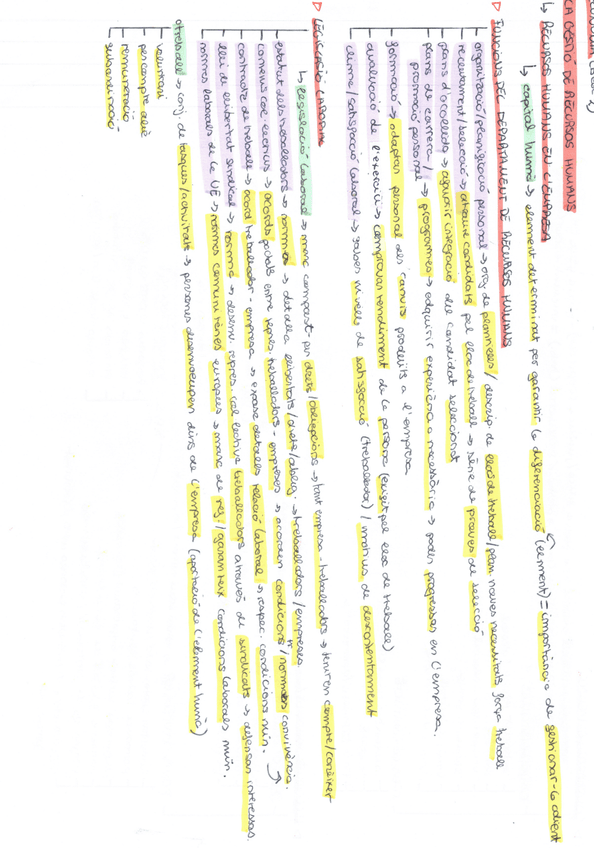 LA GESTIÓ DE RECURSOS HUMANS
↳ RECURSOS HUMANS EN L'EMPRESA
↳ capital humà → element determinant per garantir la diferenciació (element) = importància de gestionar-lo
▷ FUNCIONS DEL DEPARTAMENT DE RECURSOS HUMANS
organització/planificació personal → org. de plantilles / descrip. de llocs de treball / noves necessitats força treball
reclutament/selecció → atraure candidats pel lloc de treball → sèrie de proves de selecció
plans d'acollida → adquirir integració del candidat seleccionat
plans de carrera / promoció personal → programes → adquirir experiència necessària → poder progressar en l'empresa.
formació → adaptar personal als canvis produïts a l'empresa
avaluació de l'exercici → comprovar rendiment de la persona (exigit pel lloc de treball)
clima/satisfacció laboral → saber nivells de satisfacció (treballador) / motius de descontentament
▷ LEGISLACIÓ LABORAL
↳ legislació laboral → marc compost per drets/obligacions → tant empresa - treballadors → tenir en compte/conèixer
estatut dels treballadors → normes → detalla llibertats/drets/oblig. → treballadors/empreses
convenis col·lectius → acords pactats entre repres. treballadors - empreses → acorden condicions / normes convivència.
contracte de treball → acord treballador - empresa → exposa detalls relació laboral → respec. condicions mín.
llei de llibertat sindical → norma → desenv. repres. col·lectiva treballadors através de sindicats → defensar interessos.
normes laborals de la UE → normes comunitàries europees → marc de ref. / garanteix condicions laborals mín.
treball → conj. de tasques/activitats → persones desenvolupen dins de l'empresa (aportació de l'element humà)
voluntari
per compte aliè
remuneració
subordinació